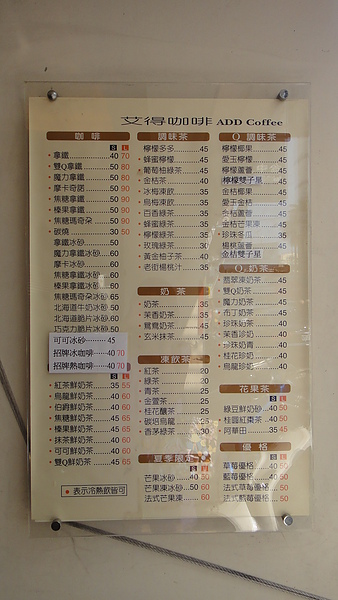 艾得咖啡 ADD Coffee
咖啡
S L
拿鐵 40 70
雙Q拿鐵 50 80
魔力拿鐵 50 80
摩卡奇諾 50 90
焦糖拿鐵 50 90
榛果拿鐵 50 90
焦糖瑪奇朵 50 90
碳燒 30 50
拿鐵冰砂 50
魔力冰砂 60
摩卡冰砂 60
焦糖冰砂 60
榛果冰砂 60
焦糖瑪奇朵冰砂 65
北海道牛奶冰砂 50
北海道脆片冰砂 60
巧克力脆片冰砂 60
可可冰砂 45
招牌冰咖啡 40 70
招牌熱咖啡 40 70
S L
紅茶鮮奶茶 35 55
烏龍鮮奶茶 40 60
伯爵鮮奶茶 40 60
焦糖鮮奶茶 45 65
榛果鮮奶茶 45 65
抹茶鮮奶茶 40 60
可可鮮奶茶 40 60
雙Q鮮奶茶 45 65
表示冷熱飲皆可
調味茶
檸檬多多 45
蜂蜜檸檬 45
葡萄柚綠茶 45
金桔茶 40
冰梅凍飲 35
烏梅凍飲 35
百香綠茶 35
蜂蜜綠茶 35
檸檬綠茶 35
玫瑰綠茶 30
黃金柚子茶 40
老街楊桃汁 35
奶茶
奶茶 35
茉香奶茶 35
鴛鴦奶茶 45
玄米抹茶 45
涼飲茶
紅茶 20
綠茶 20
青茶 20
金萱茶 20
桂花釀茶 25
碳焙烏龍 25
香茅綠茶 30
夏季限定
芒果冰 40 50
芒果凍冰砂 50 60
法式芒果凍 60
Q 調味茶
檸檬椰果 45
愛玉檸檬 45
檸檬蘆薈 45
檸檬雙子星 45
金桔椰果 45
愛玉金桔 45
金桔蘆薈 45
金桔芒果凍 45
珍珠冬瓜 35
楊桃蘆薈
金桔雙子星
Q 奶茶
翡翠凍奶茶 45
雙Q奶茶 45
魔力奶茶 45
布丁奶茶 45
珍珠奶茶 40
茉香珍奶 40
珍珠奶青 40
桂花珍奶 40
烏龍珍奶 40
花果茶
S L
綠豆鮮奶砂 40 50
桂圓紅棗茶 40 50
阿華田 35 45
優格
S L
草莓優格 40 50
藍莓優格 40 50
法式草莓優格 50
法式藍莓優格 60